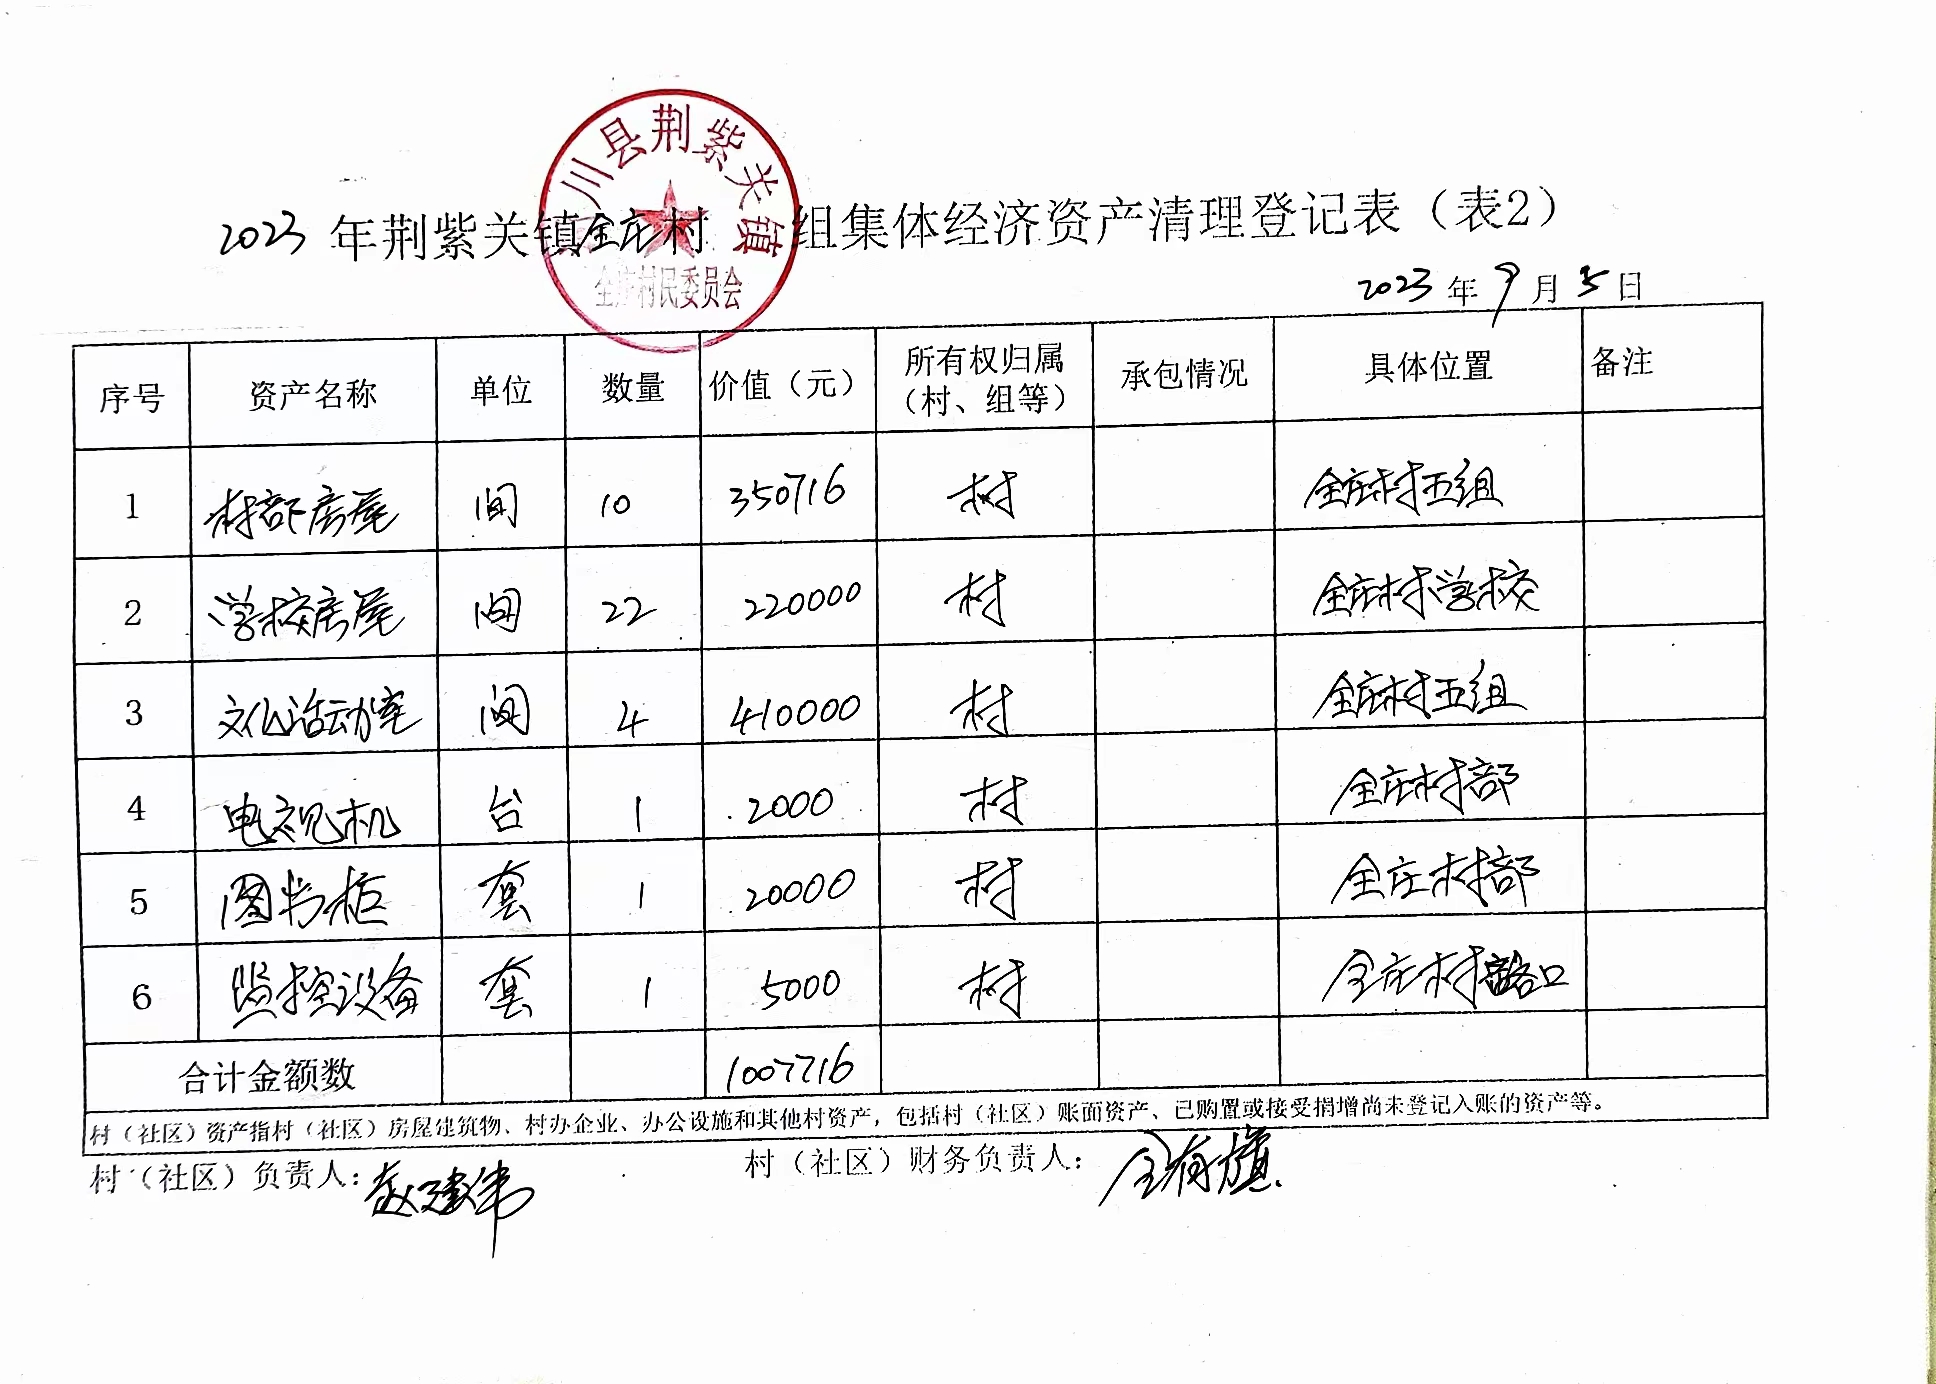 川县荆紫关镇
全庄村民委员会
2023 年荆紫关镇全庄村 组集体经济资产清理登记表（表2）
2023 年 9 月 5 日
序号 资产名称 单位 数量 价值（元） 所有权归属（村、组等） 承包情况 具体位置 备注
1 村部房屋 间 10 350716 村 全庄村五组
2 学校房屋 间 22 220000 村 全庄村学校
3 文化活动室 间 4 410000 村 全庄村五组
4 电视机 台 1 2000 村 全庄村部
5 图书柜 套 1 20000 村 全庄村部
6 监控设备 套 1 5000 村 全庄村路口
合计金额数 1007716
村（社区）资产指村（社区）房屋建筑物、村办企业、办公设施和其他村资产，包括村（社区）账面资产、已购置或接受捐增尚未登记入账的资产等。
村（社区）负责人：赵建伟 村（社区）财务负责人：全有